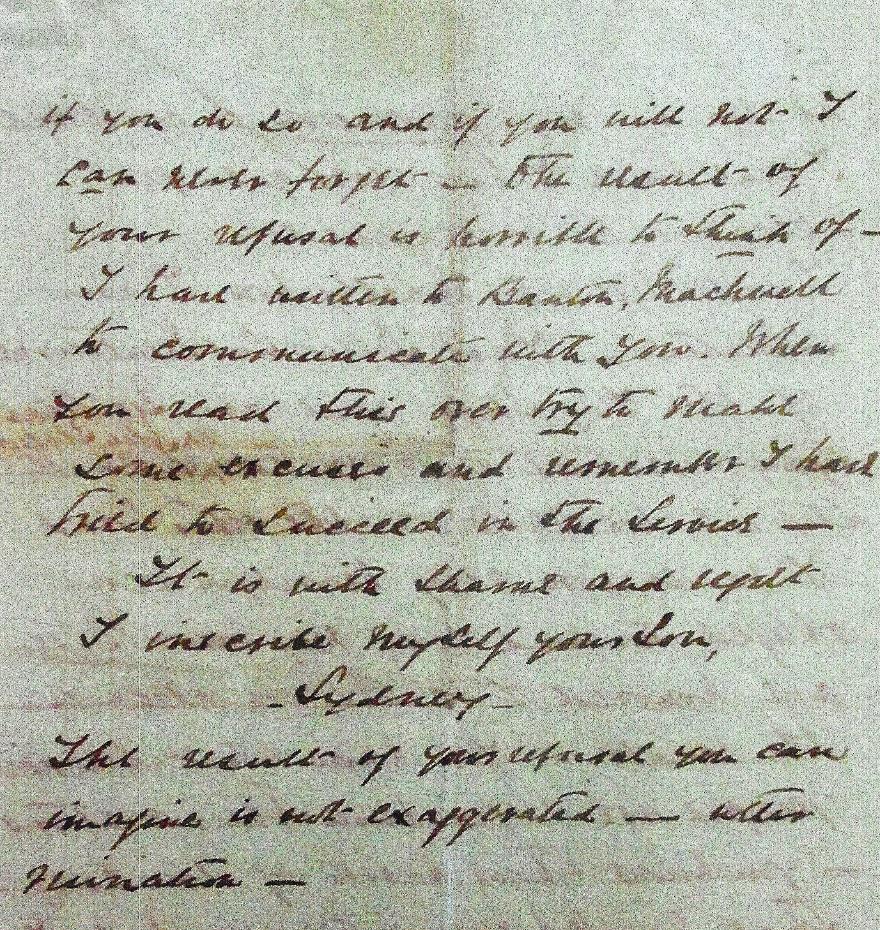 if you do so and if you will not I
can never forget — The result of
your refusal is horrible to think of —
I have written to Machell
to communicate with you. When
you read this over try to make
some excuses and remember I have
tried to succeed in the Service —
It is with shame and regret
I inscribe myself your Son,
- Sydney -
The result of your refusal you can
imagine is not exaggerated — utter
ruination —